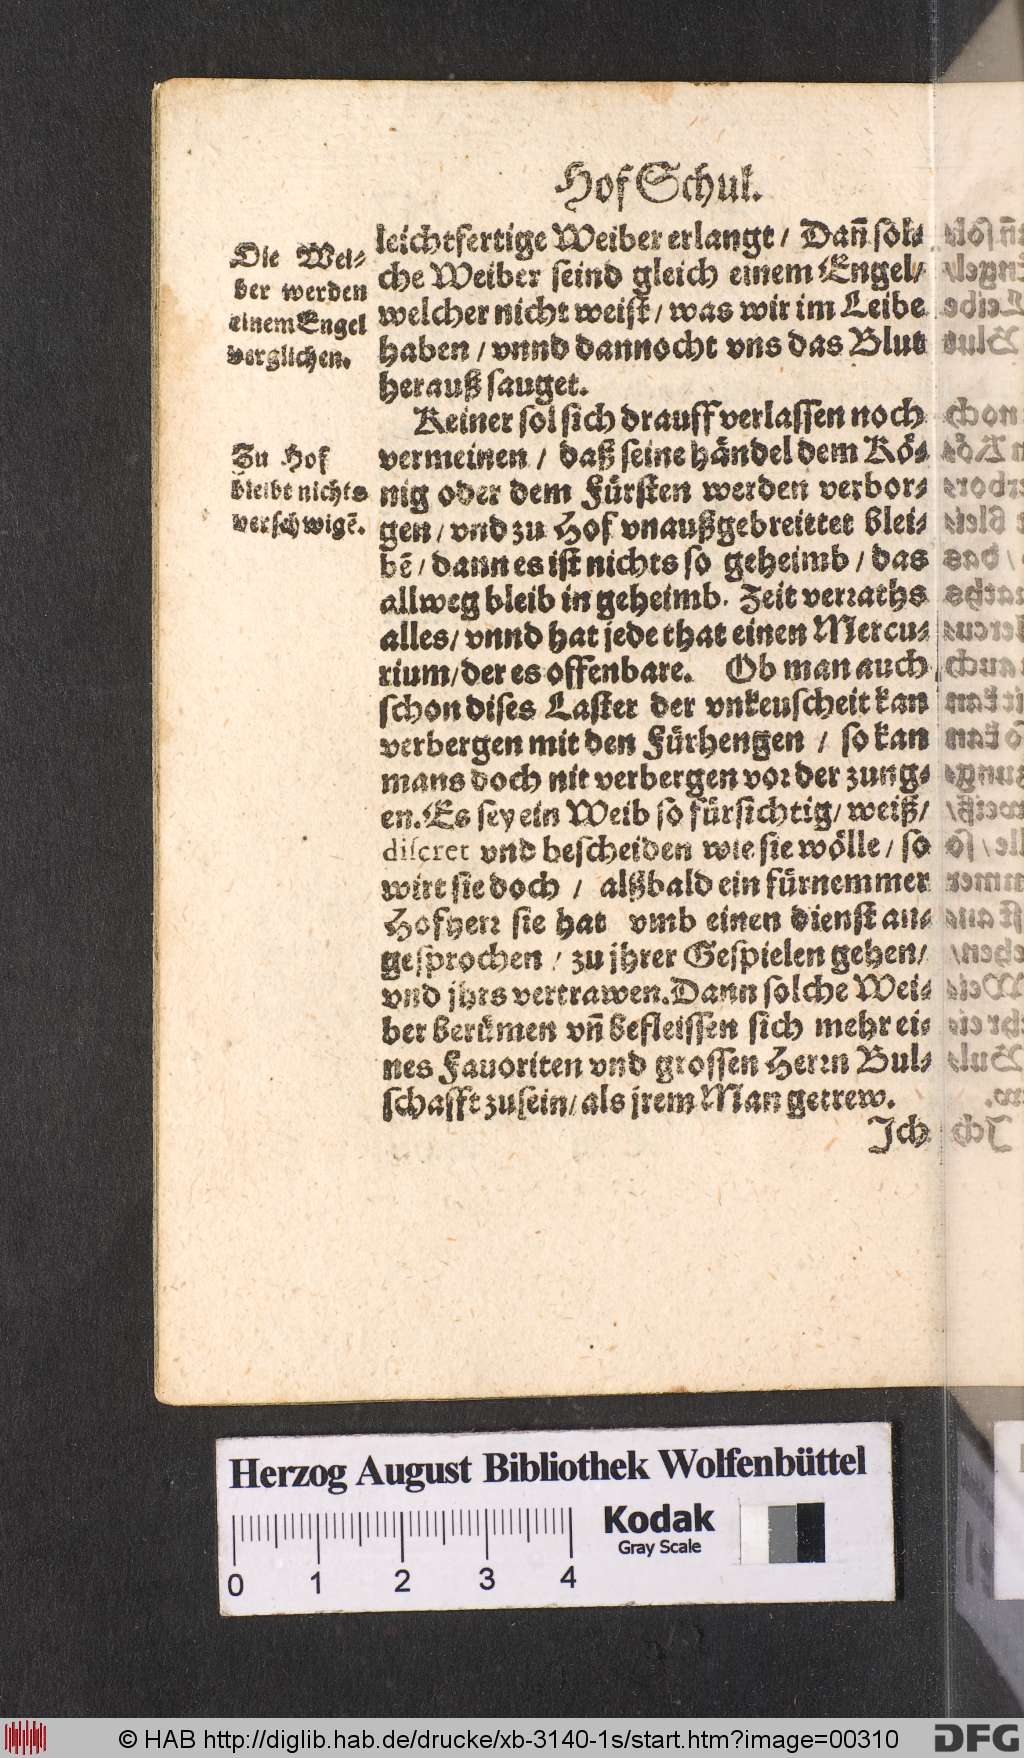 Hof Schul.
leichtfertige Weiber erlangt / Dañ sol⸗
che Weiber seind gleich einem Engel/
welcher nicht weist / was wir im Leibe
haben / vnnd dannocht vns das Blut
herauß sauget.
Die Wei⸗
ber werden
einem Engel
verglichen.
Keiner sol sich drauff verlassen noch
vermeinen / daß seine händel dem Kö⸗
nig oder dem Fürsten werden verbor⸗
gen / vnd zu Hof vnaußgebreittet blei⸗
bẽ / dann es ist nichts so geheimb / das
allweg bleib in geheimb. Zeit verraths
alles / vnnd hat jede that einen Mercu⸗
rium / der es offenbare. Ob man auch
schon dises Laster der vnkeuscheit kan
verbergen mit den Fürhengen / so kan
mans doch nit verbergen vor der zung⸗
en. Es sey ein Weib so fürsichtig / weiß /
discret vnd bescheiden wie sie wölle / so
wirt sie doch / alßbald ein fürnemmer
Hofherr sie hat vmb einen dienst an⸗
gesprochen / zu jhrer Gespielen gehen /
vnd jhrs vertrawen. Dann solche Wei⸗
ber berümen vñ befleissen sich mehr ei⸗
nes Fauoriten vnd grossen Herrn Bul⸗
schafft zusein / als jrem Man getrew.
Zu Hof
bleibt nichts
verschwigẽ.
Jch
Herzog August Bibliothek Wolfenbüttel
Kodak
Gray Scale
0 1 2 3 4
© HAB http://diglib.hab.de/drucke/xb-3140-1s/start.htm?image=00310
DFG